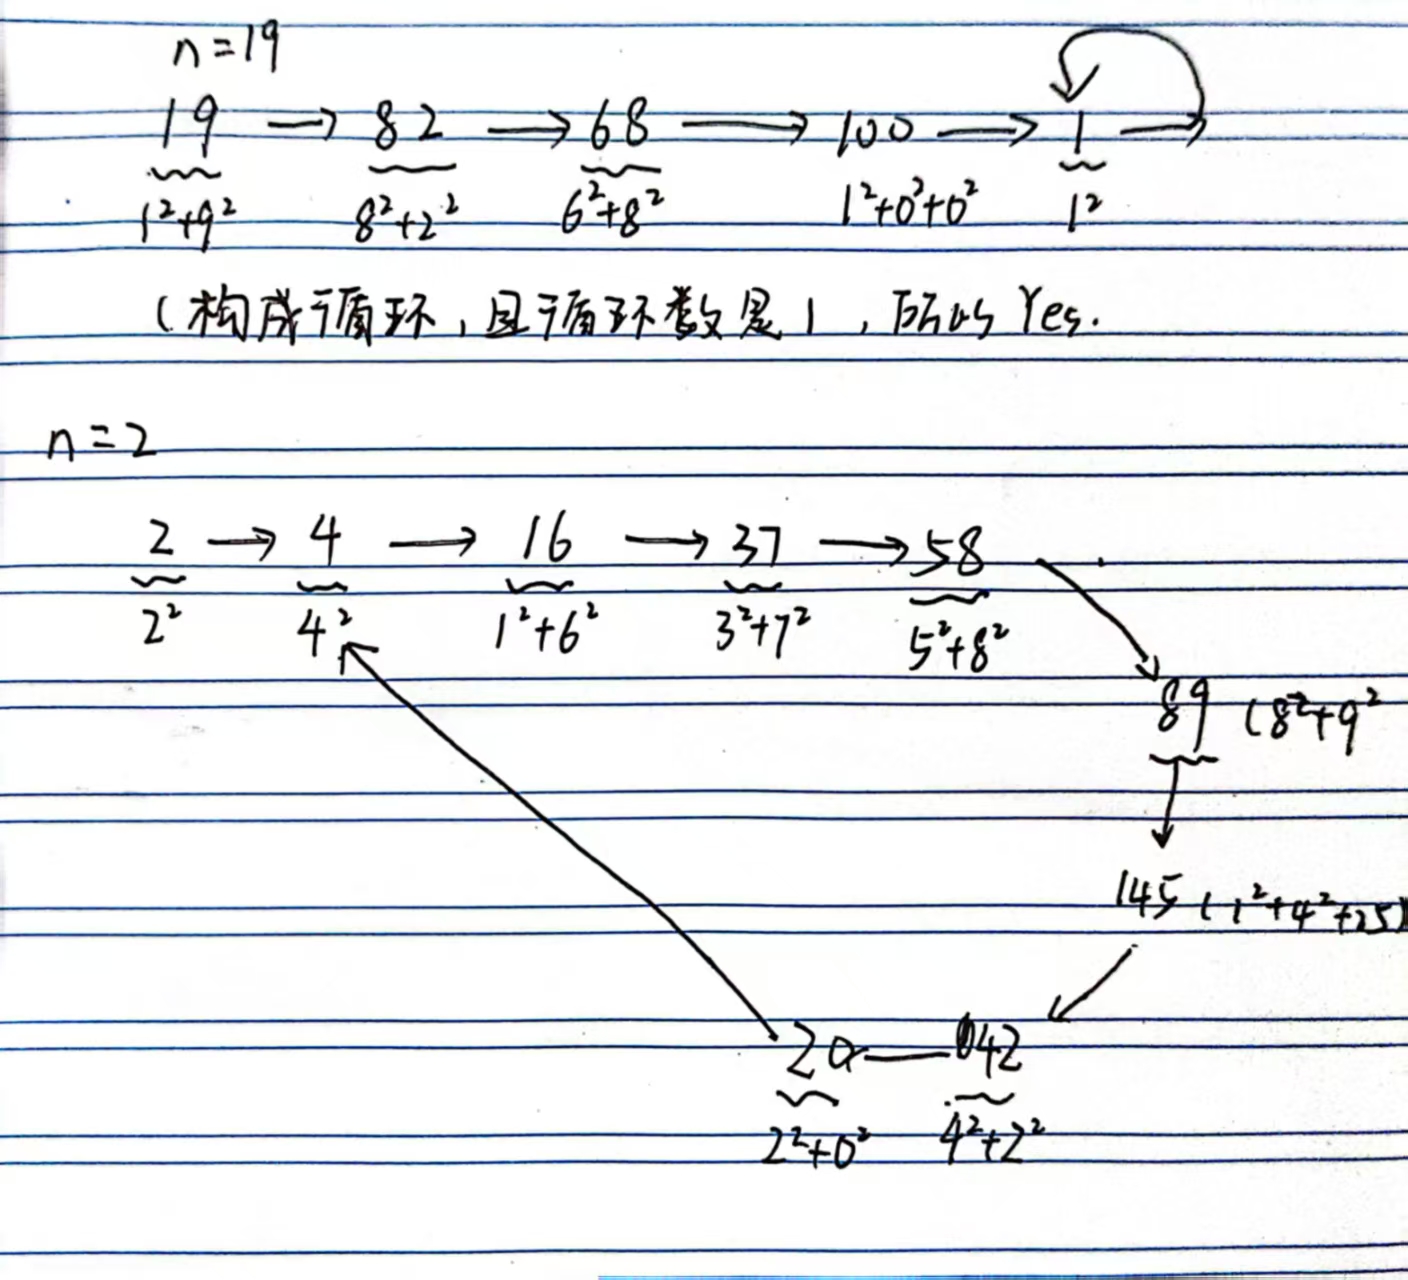 n=19
19 → 82 → 68 → 100 → 1 →
1²+9² 8²+2² 6²+8² 1²+0²+0² 1²
(构成循环,且循环数是1,所以 Yes.
n=2
2 → 4 → 16 → 37 → 58
2² 4² 1²+6² 3²+7² 5²+8²
89 (8²+9²
145 (1²+4²+25)
20 — 42
2²+0² 4²+2²